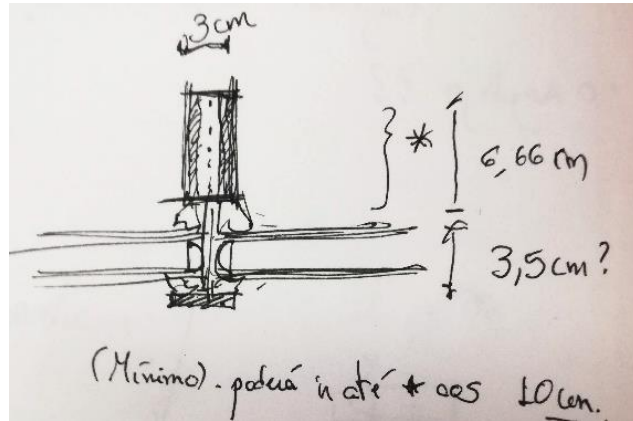 3cm
* 6,66 cm
3,5cm?
(Mínimo). poderá ir até * aos 10cm.